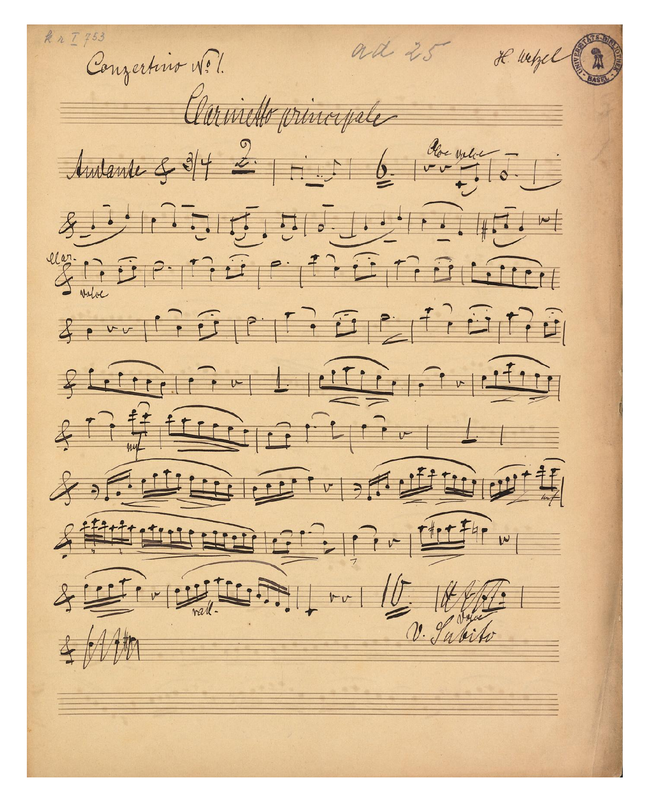 kr I 753
ad 25
Conzertino No 1.
H. Wetzel
UNIVERSITÄTS-BIBLIOTHEK
BASEL
Clarinetto principale
Andante 3/4 2. 6. Oboe
Clar.
mf
mf
rall. 10
V. Subito